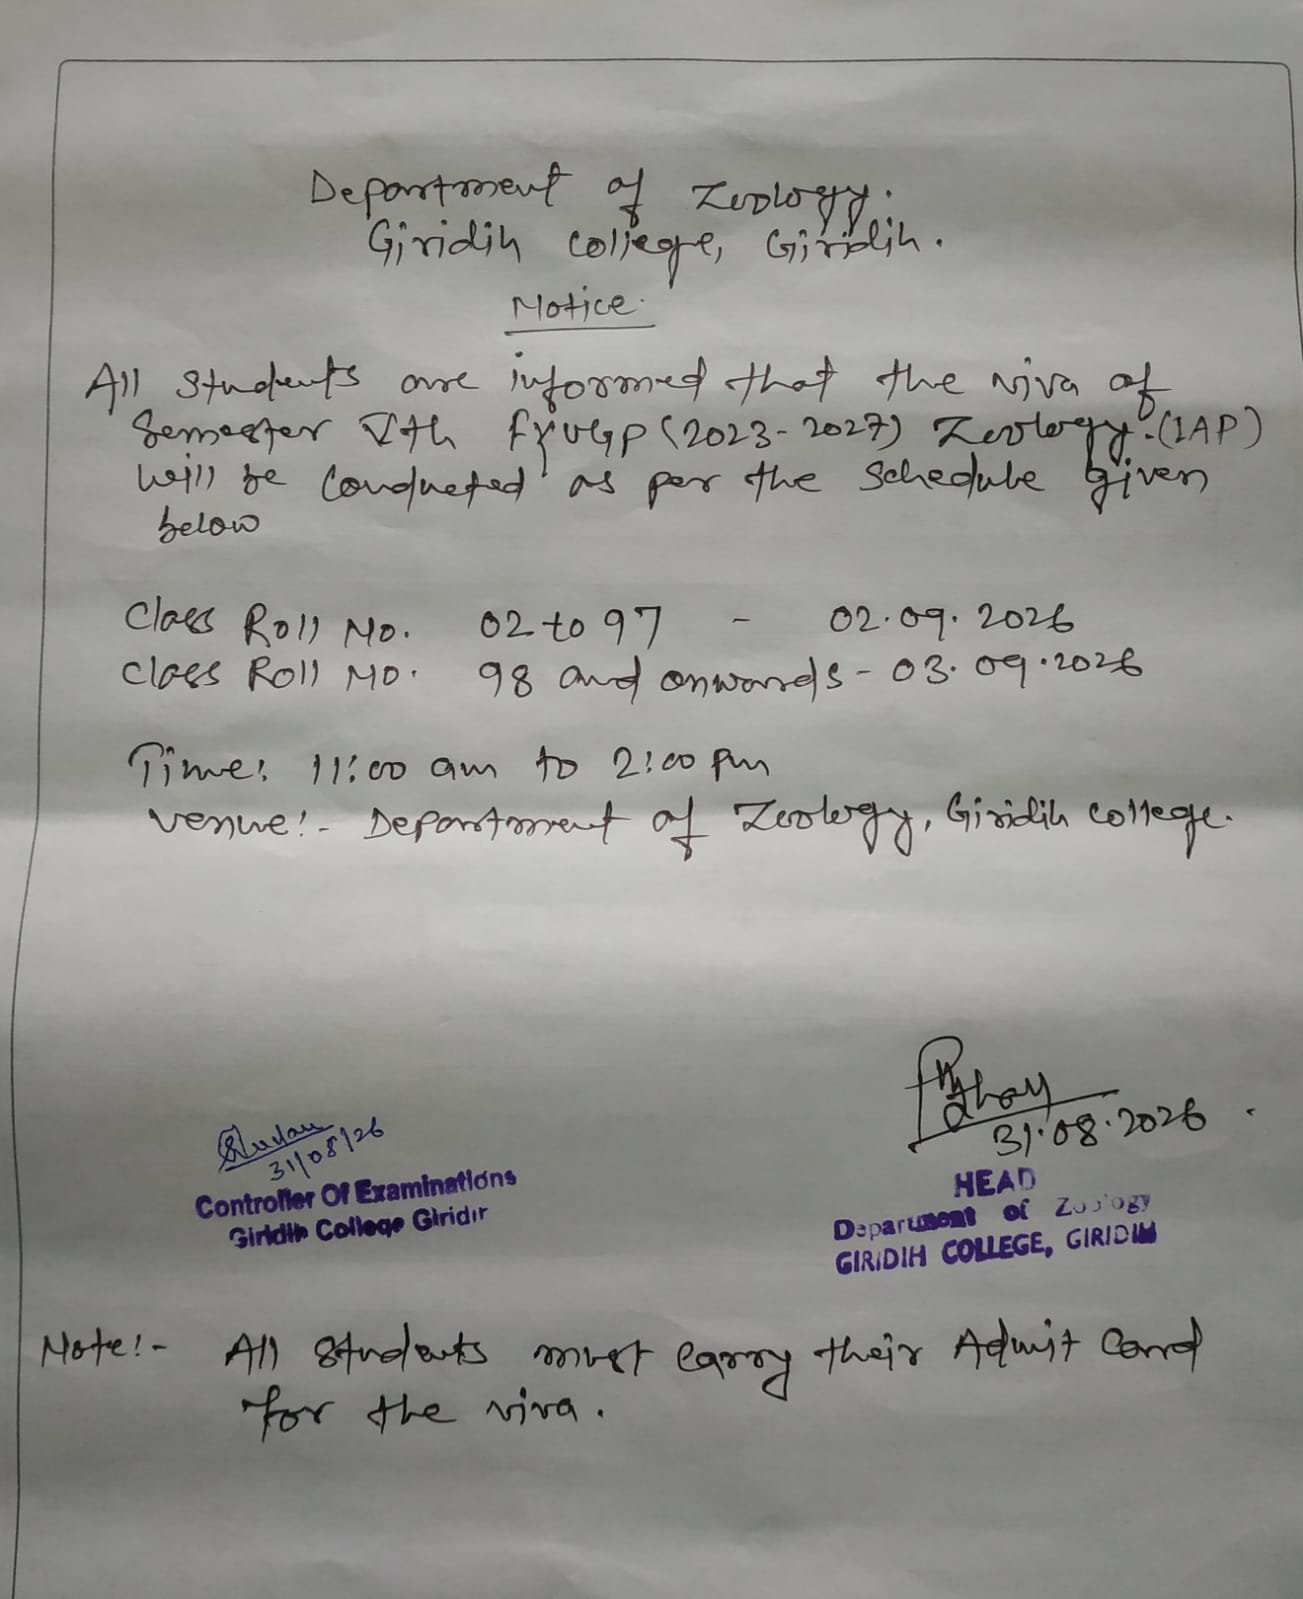 Department of Zoology.
Giridih College, Giridih.
Notice.
All students are informed that the viva of
Semester Vth FYUGP (2023-2027) Zoology.(IAP)
will be conducted as per the schedule given
below
Class Roll No. 02 to 97 - 02.09.2026
Class Roll No. 98 and onwards - 03.09.2026
Time: 11:00 am to 2:00 pm
Venue:- Department of Zoology, Giridih College.
31.08.2026
31/08/26
HEAD
Department of Zoology
GIRIDIH COLLEGE, GIRIDIH
Controller Of Examinations
Giridih College Giridih
Note:- All students must carry their Admit Card
for the viva.